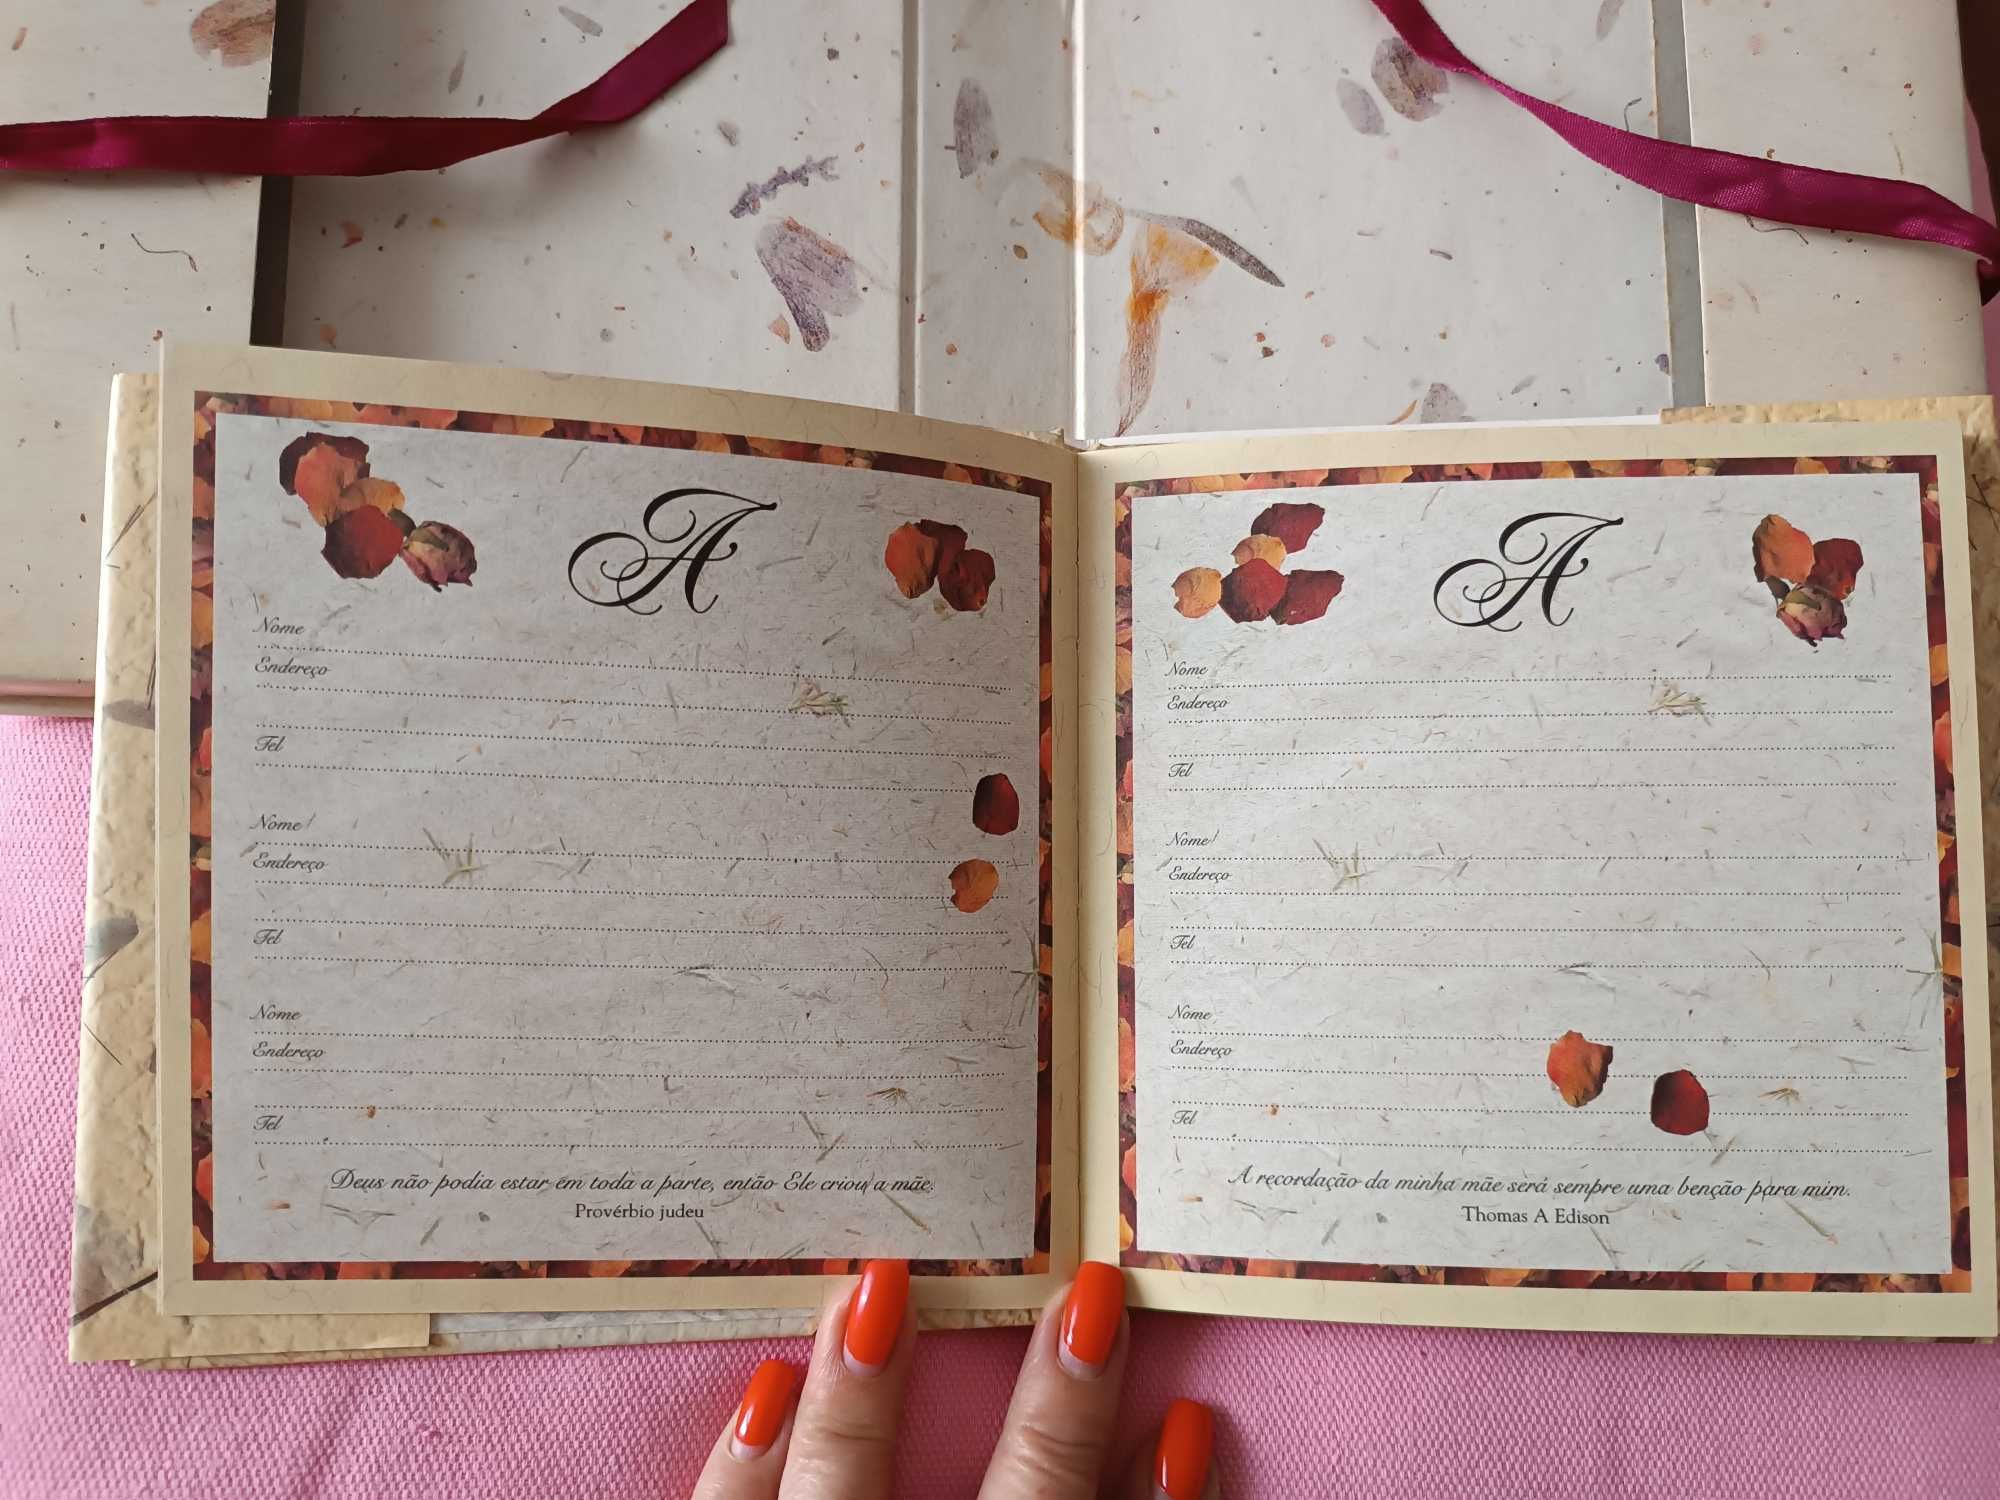 A
Nome
Endereço
Tel
Nome
Endereço
Tel
Nome
Endereço
Tel
Deus não podia estar em toda a parte, então Ele criou a mãe.
Provérbio judeu
A
Nome
Endereço
Tel
Nome
Endereço
Tel
Nome
Endereço
Tel
A recordação da minha mãe será sempre uma benção para mim.
Thomas A Edison